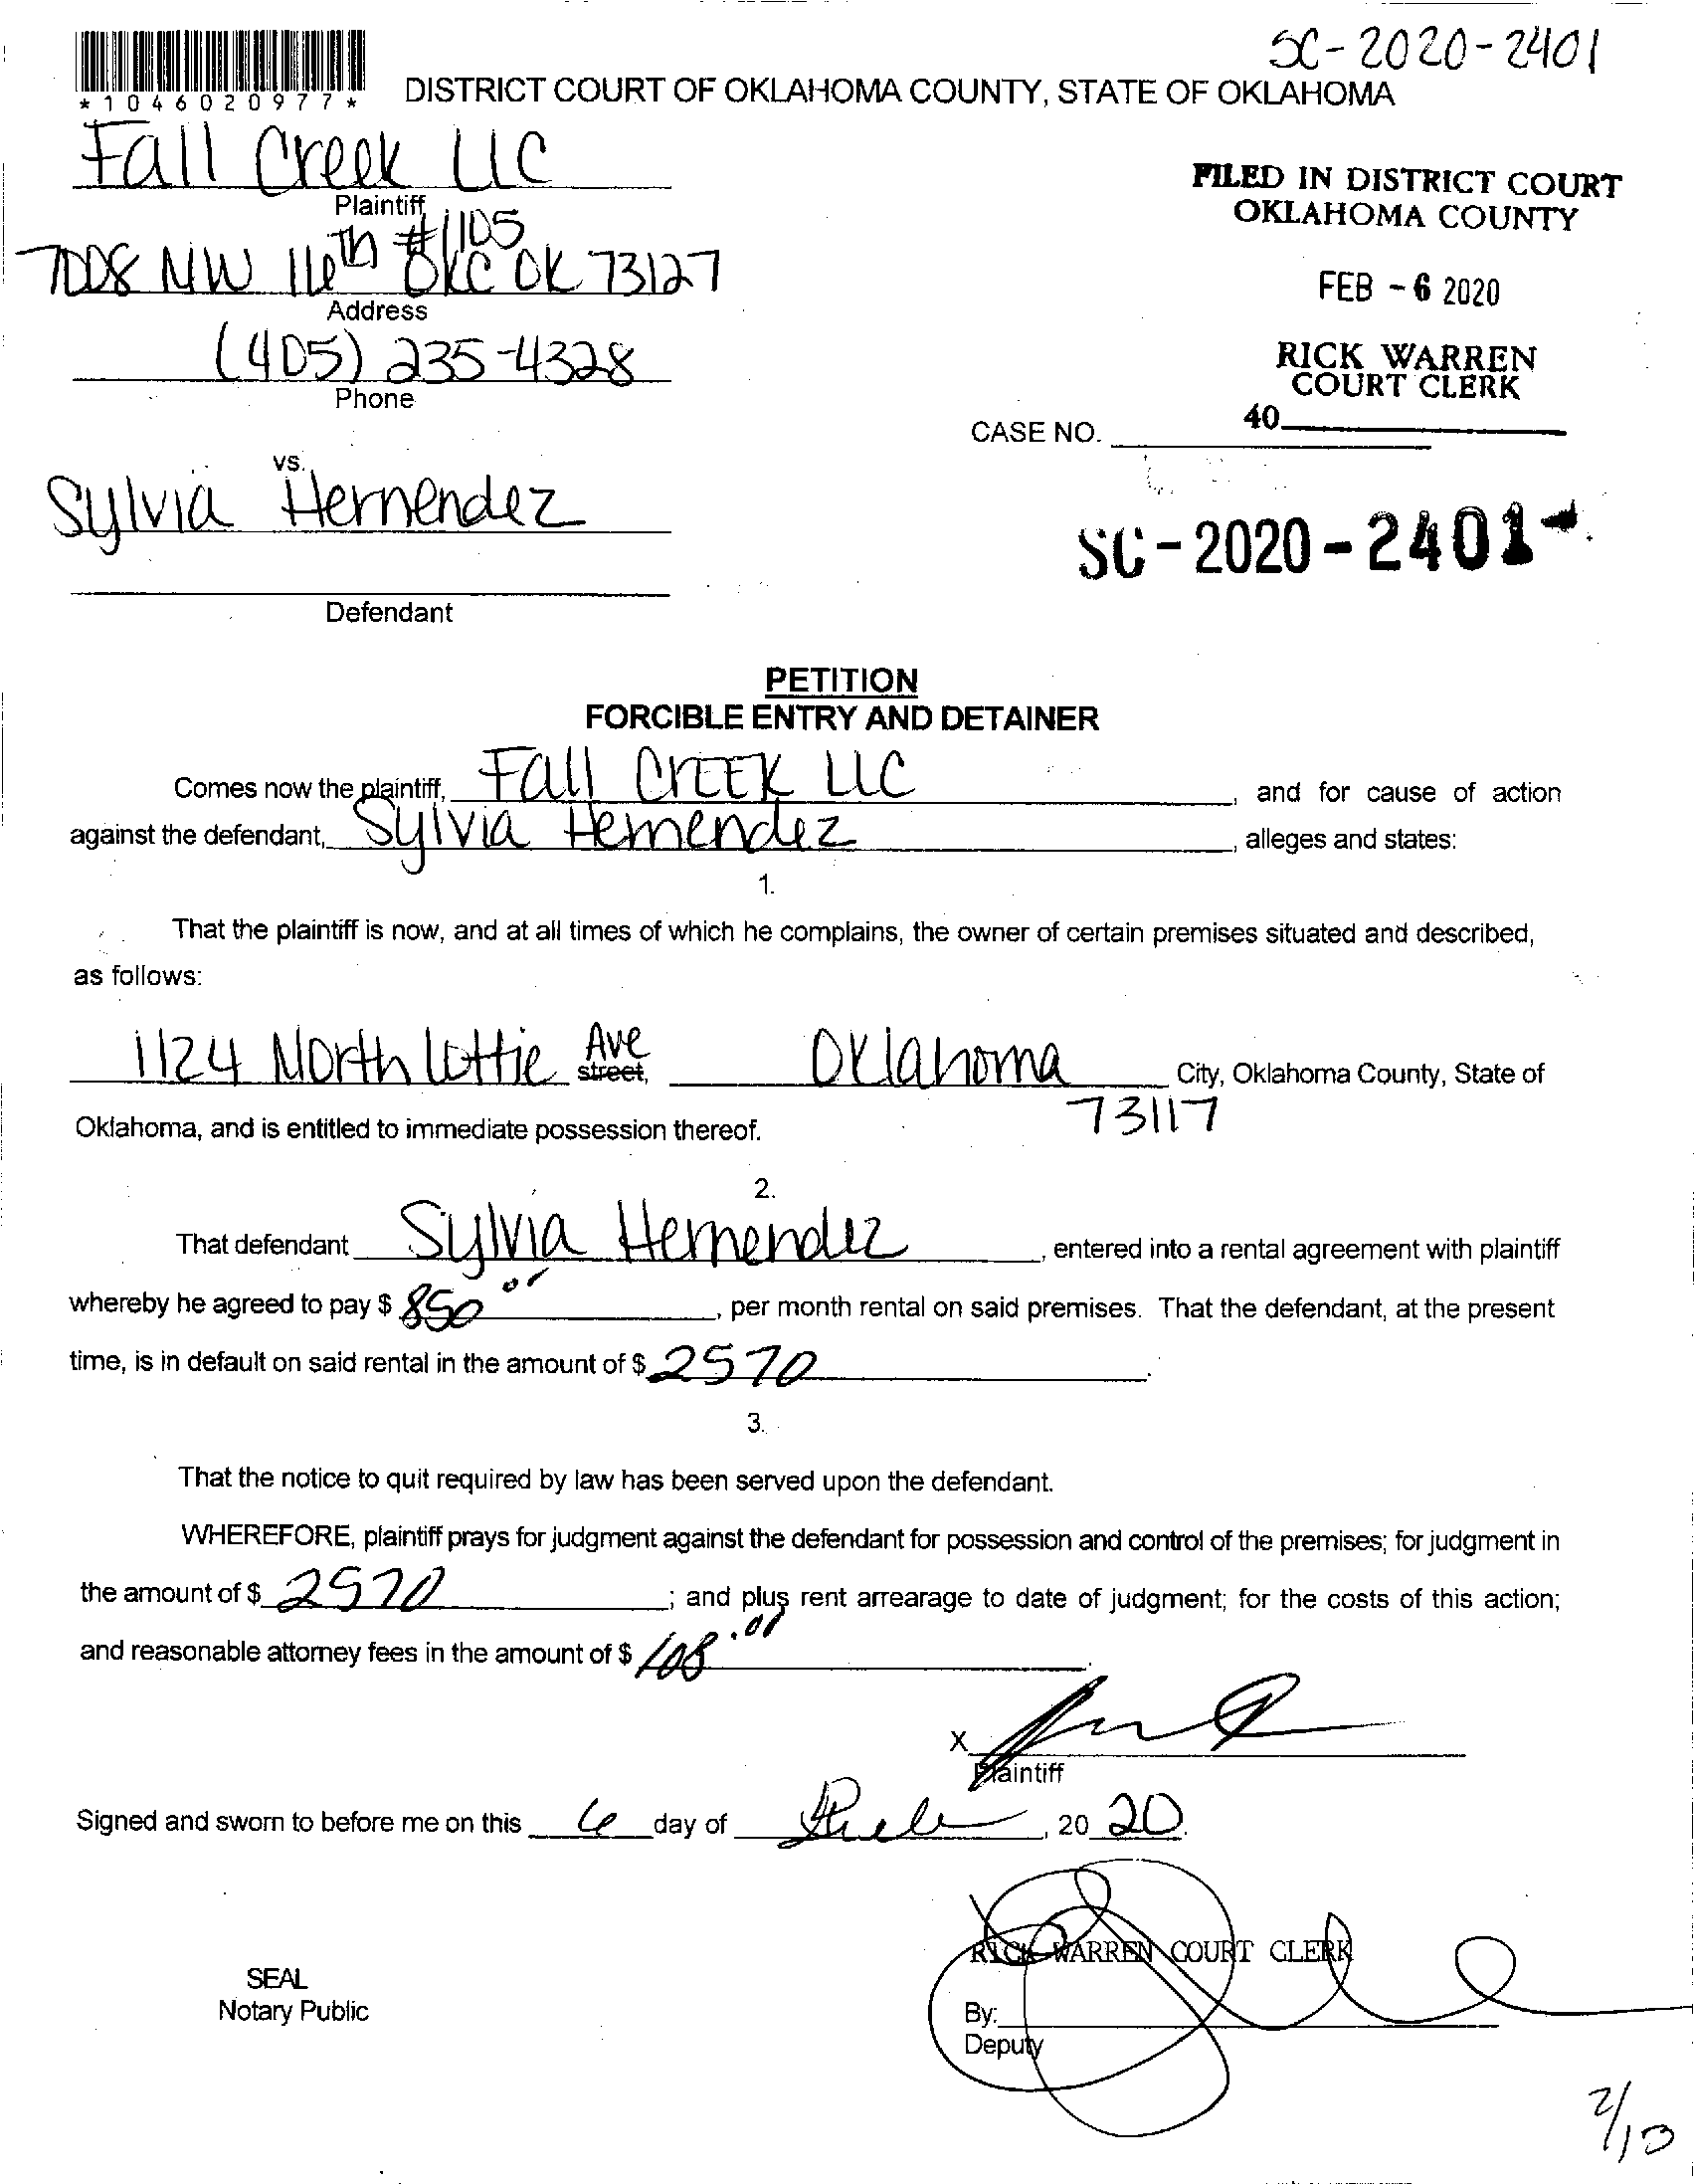 SC-2020-2401
*1046020977*
DISTRICT COURT OF OKLAHOMA COUNTY, STATE OF OKLAHOMA
Fall Creek LLC
Plaintiff
7008 NW 16th #1105 OKC OK 73127
Address
(405) 235-4328
Phone
FILED IN DISTRICT COURT
OKLAHOMA COUNTY
FEB - 6 2020
RICK WARREN
COURT CLERK
40
CASE NO.
vs.
Sylvia Hernendez
SC-2020-2401
Defendant
PETITION
FORCIBLE ENTRY AND DETAINER
Comes now the plaintiff, Fall Creek LLC, and for cause of action
against the defendant, Sylvia Hernendez, alleges and states:
1.
That the plaintiff is now, and at all times of which he complains, the owner of certain premises situated and described,
as follows:
1124 North Lottie Ave street, Oklahoma City, Oklahoma County, State of
73117
Oklahoma, and is entitled to immediate possession thereof.
2.
That defendant Sylvia Hernendez, entered into a rental agreement with plaintiff
whereby he agreed to pay $ 850, per month rental on said premises. That the defendant, at the present
time, is in default on said rental in the amount of $ 2570.
3.
That the notice to quit required by law has been served upon the defendant.
WHEREFORE, plaintiff prays for judgment against the defendant for possession and control of the premises; for judgment in
the amount of $ 2570; and plus rent arrearage to date of judgment; for the costs of this action;
and reasonable attorney fees in the amount of $
X
Plaintiff
Signed and sworn to before me on this 6 day of 2020.
RICK WARREN COURT CLERK
SEAL
Notary Public
By:
Deputy
2/13